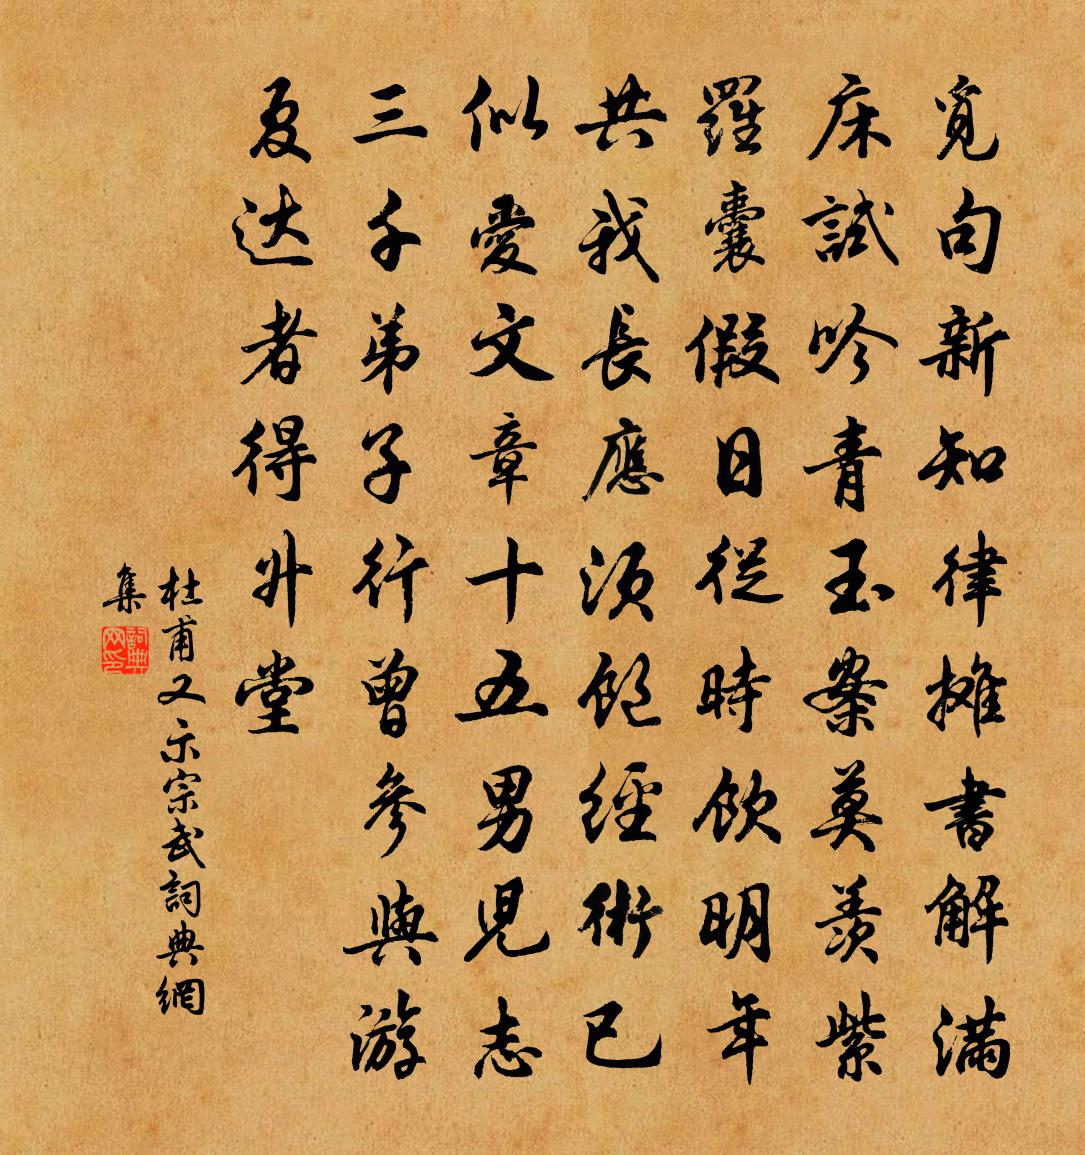 覓句新知律攤書解滿
床試吟青玉案莫羨紫
羅囊假日從時飲明年
共我長應須飽經術已
似愛文章十五男兒志
三千弟子行曾參與游
夏达者得升堂
杜甫又示宗武詞典網
集
詞典網印